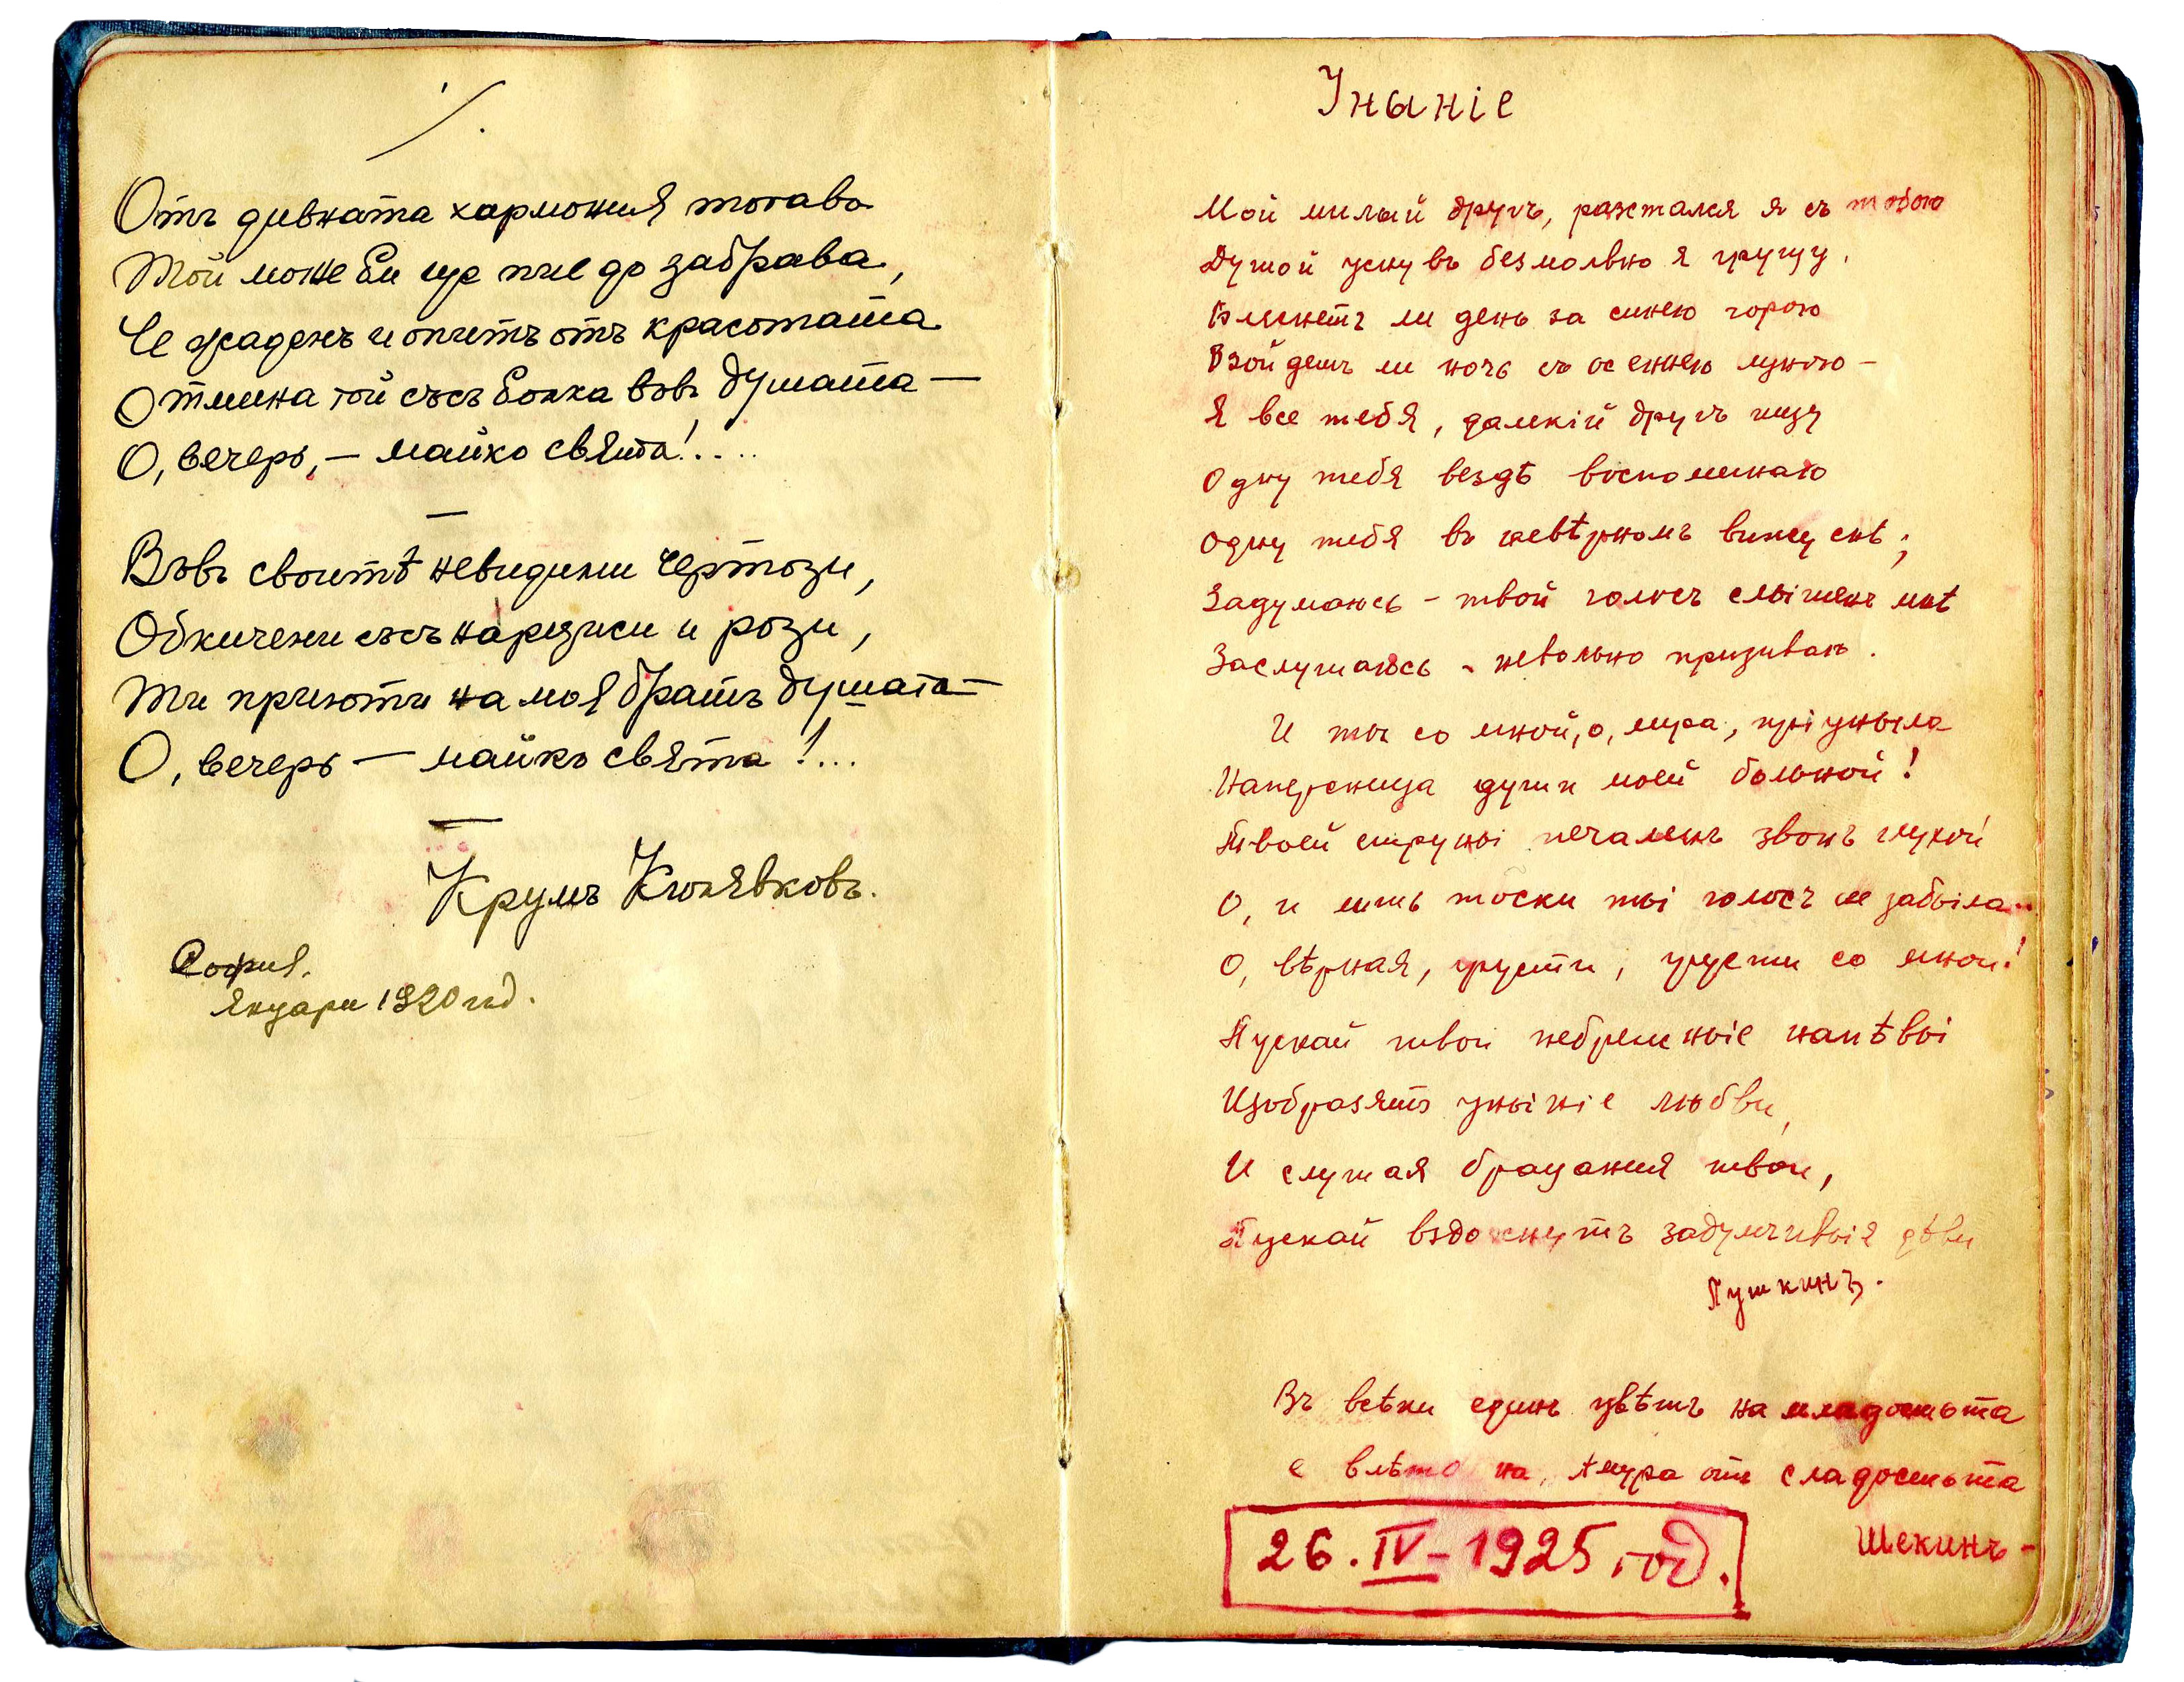 Отъ дивната хармония тогава
Той може би ще пие до забрава,
Че жаденъ и опитъ отъ красотата
Отмина той съсъ болка въвъ душата —
О, вечерь, — майко свята!....
Въвъ своитѣ невидими чертози,
Обкичени съсъ нарциси и рози,
Ти приюти на моя братъ душата —
О, вечерь — майко свята!...
Крумъ Кюлявковъ.
София.
Януари 1920 год.
Унынiе
Мой милый другъ, разстался я съ тобою
Душой уснувъ безмолвно я грущу.
Блеснетъ ли день за синею горою
Взойдетъ ли ночь съ осеннею луною —
Я все тебя, далекiй другъ ищу
Одну тебя вездѣ воспоминаю
Одну тебя въ невѣрномъ вижу снѣ;
Задумаюсь - твой голосъ слышенъ мнѣ
Заслушаюсь - невольно призиваю.
И ты со мной, о, лира, прiуныла
Наперсница души моей больной!
Твоей струны печаленъ звонъ глухой
О, и лишь тоски ты голосъ не забыла..
О, вѣрная, грусти, грусти со мной!
Пускай твои небрежные напѣвы
Изобразятъ унынiе любви,
И слушая бряцания твои,
Пускай вздохнутъ задумчивыя дѣви
Пушкинъ.
Въ всѣки единъ цвѣтъ на младостьта
е влѣто на Амура отъ сладостьта
Шекинъ -
26. IV - 1925 год.